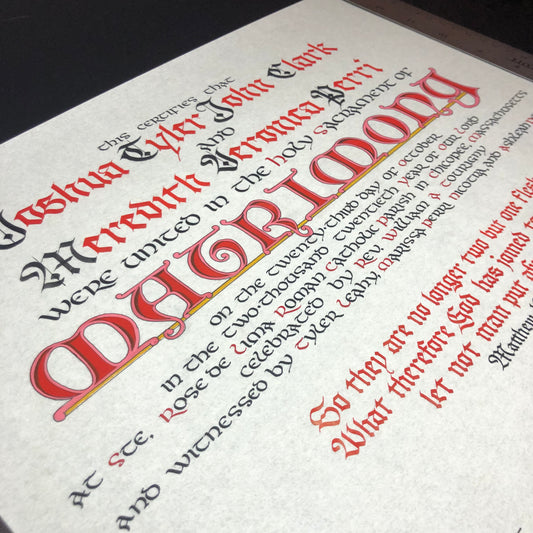 this certifies that
Joshua Tyler John Clark
and
Meredith Veronica Perri
were united in the Holy Sacrament of
MATRIMONY
on the twenty-third day of October
in the two-thousand twentieth year of our Lord
at Ste. Rose de Lima Roman Catholic Parish in Chicopee, Massachusetts
celebrated by Rev. William A Tourigny
and witnessed by Tyler Leahy, Marissa Perri Nicotra and
So they are no longer two but one flesh
What therefore God has joined
let not man put
Matthew